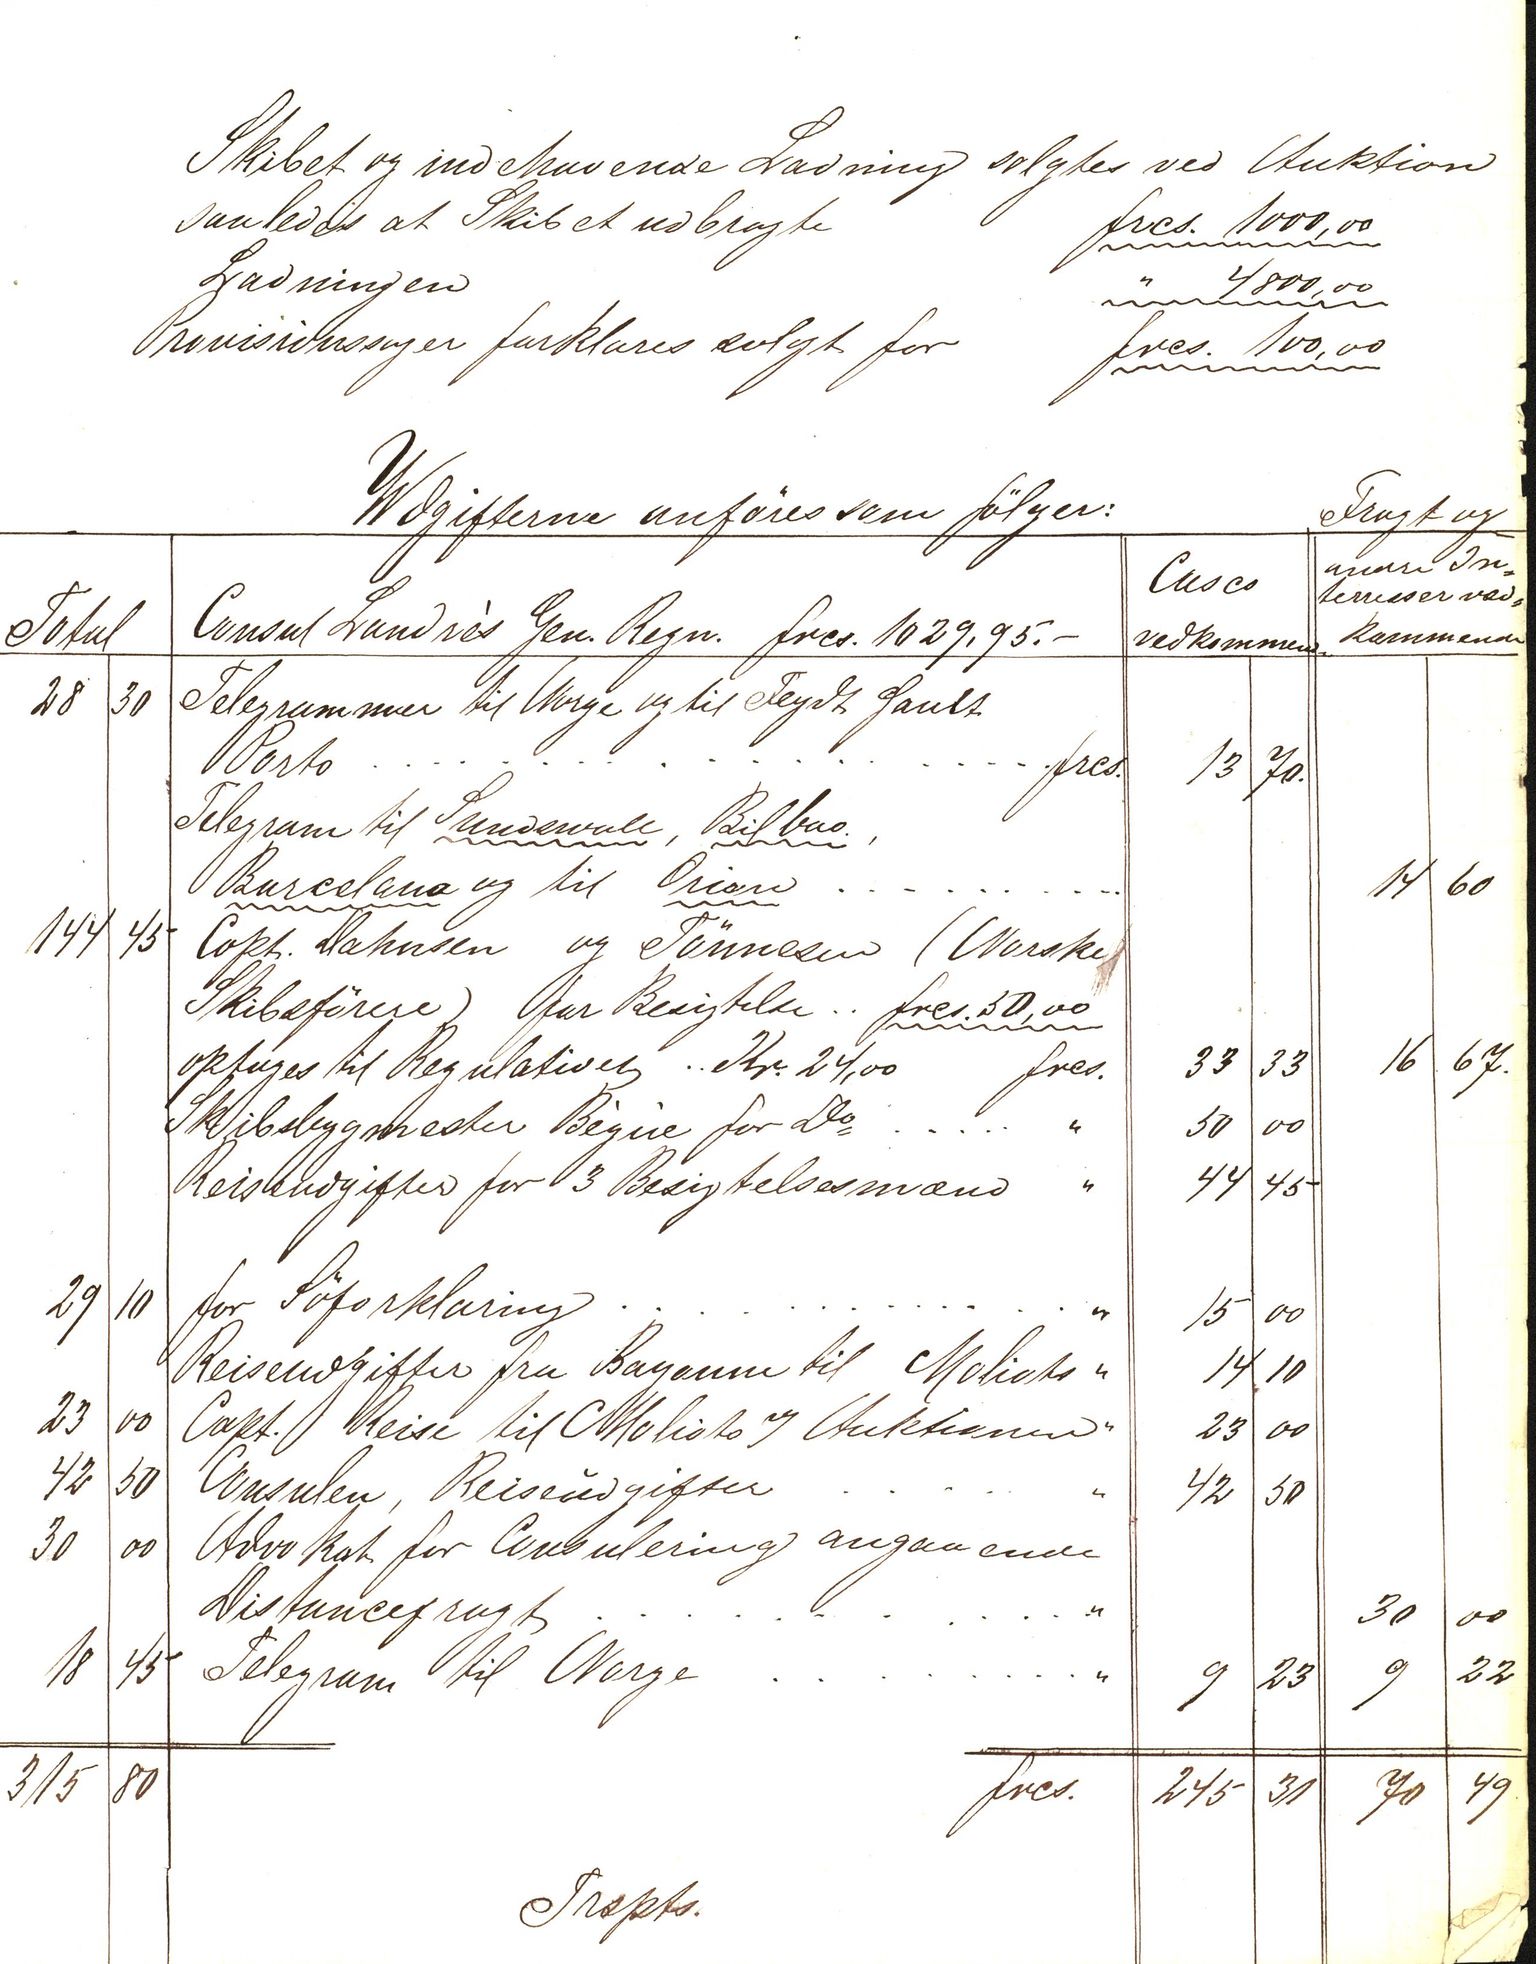 Skibet og indehavende Ladning solgtes ved Auktion
saaledes at Skibet udbragte frcs. 1000,00
Ladningen " 4800,00
Provisionssager forklares solgt for frcs. 100,00
Udgifterne anföres som fölger:
Total Consul Landrés Gen. Regn. frcs. 1029,95.- Casco vedkommend. Fragt og andre Interesser vedkommende
28 30 Telegrammer til Norge og til Feydt
Porto frcs. 13 70.
Telegram til Sundswall, Bilbao,
Barcelona og til Orion 14 60
144 45 Capt. Dahnsen og Tönnesen (Norske
Skibsförere) for Besigtelse .. frcs. 50,00
optages til Regulativet .. Kr. 24,00 frcs. 33 33 16 67.
Skibsbygmester Bégue for Do " 50 00
Reiseudgifter for 3 Besigtelsesmænd " 44 45
29 10 for Söforklaring " 15 00
Reiseudgifter fra Bayonne til Moliets " 14 10
23 00 Capt. Reise til Moliets Auktionen " 23 00
42 50 Consulen, Reiseudgifter " 42 50
30 00 Advokat for Consulering angaaende
Distancefragt " 30 00
18 45 Telegram til Norge " 9 23 9 22
315 80 frcs. 245 31 70 49
Trspts.